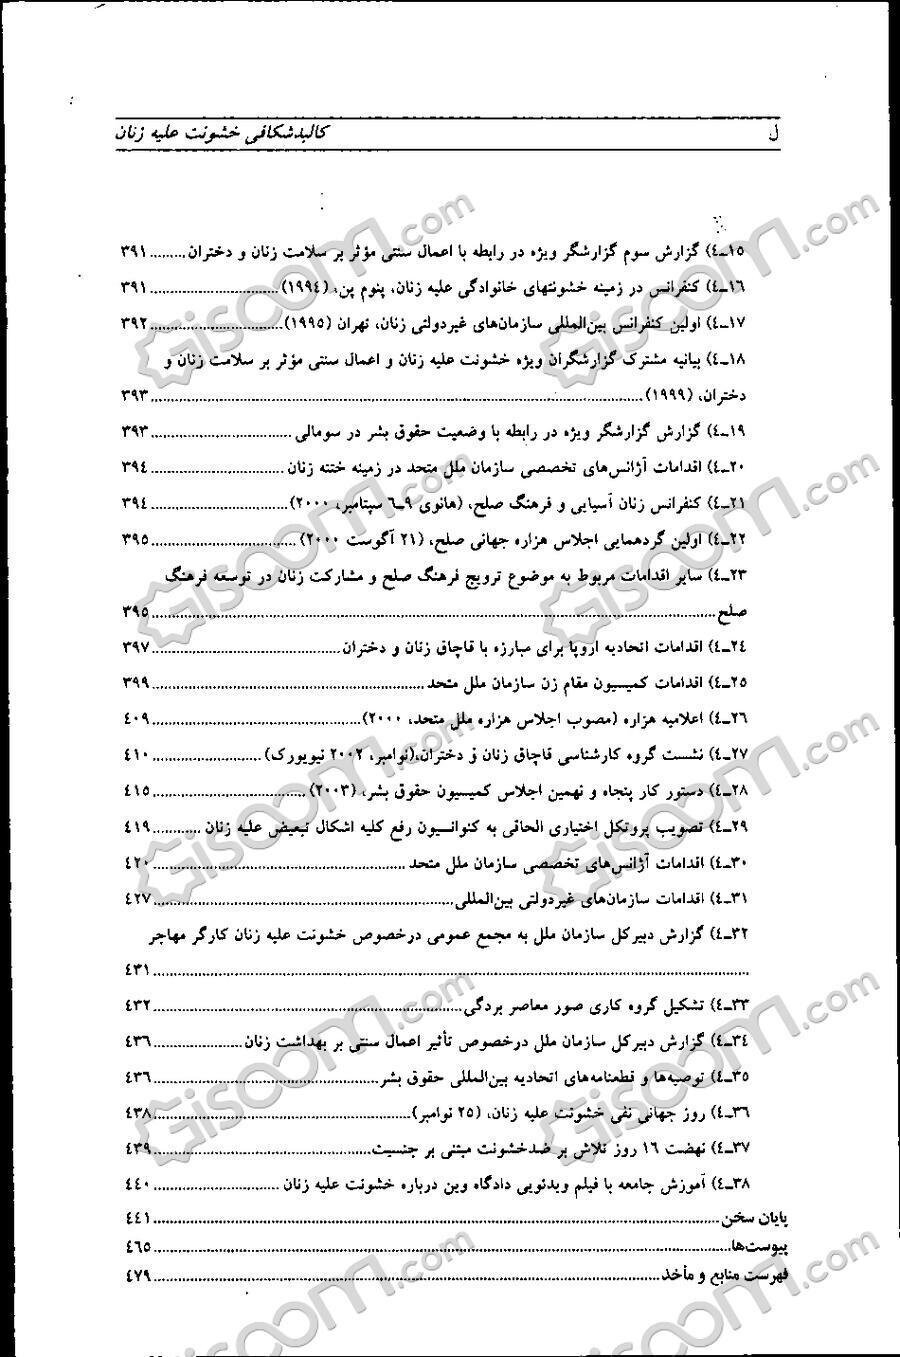 ل کالبدشکافی خشونت علیه زنان
١٥ـ٤) گزارش سوم گزارشگر ویژه در رابطه با اعمال سنتی مؤثر بر سلامت زنان و دختران ......... ٣٩١
١٦ـ٤) کنفرانس در زمینه خشونتهای خانوادگی علیه زنان، پنوم پن، (١٩٩٤) ................................ ٣٩١
١٧ـ٤) اولین کنفرانس بین‌المللی سازمان‌های غیردولتی زنان، تهران (١٩٩٥) ................................ ٣٩٢
١٨ـ٤) بیانیه مشترک گزارشگران ویژه خشونت علیه زنان و اعمال سنتی مؤثر بر سلامت زنان و
دختران، (١٩٩٩) ................................ ٣٩٣
١٩ـ٤) گزارش گزارشگر ویژه در رابطه با وضعیت حقوق بشر در سومالی ................................ ٣٩٣
٢٠ـ٤) اقدامات آژانس‌های تخصصی سازمان ملل متحد در زمینه ختنه زنان ................................ ٣٩٤
٢١ـ٤) کنفرانس زنان آسیایی و فرهنگ صلح، (هانوی ٩ـ٦ سپتامبر، ٢٠٠٠) ................................ ٣٩٤
٢٢ـ٤) اولین گردهمایی اجلاس هزاره جهانی صلح، (٢١ آگوست ٢٠٠٠) ................................ ٣٩٥
٢٣ـ٤) سایر اقدامات مربوط به موضوع ترویج فرهنگ صلح و مشارکت زنان در توسعه فرهنگ
صلح ................................ ٣٩٥
٢٤ـ٤) اقدامات اتحادیه اروپا برای مبارزه با قاچاق زنان و دختران ................................ ٣٩٧
٢٥ـ٤) اقدامات کمیسیون مقام زن سازمان ملل متحد ................................ ٣٩٩
٢٦ـ٤) اعلامیه هزاره (مصوب اجلاس هزاره ملل متحد، ٢٠٠٠) ................................ ٤٠٩
٢٧ـ٤) نشست گروه کارشناسی قاچاق زنان و دختران،(نوامبر، ٢٠٠٢ نیویورک) ................................ ٤١٠
٢٨ـ٤) دستور کار پنجاه و نهمین اجلاس کمیسیون حقوق بشر، (٢٠٠٣) ................................ ٤١٥
٢٩ـ٤) تصویب پروتکل اختیاری الحاقی به کنوانسیون رفع کلیه اشکال تبعیض علیه زنان ............ ٤١٩
٣٠ـ٤) اقدامات آژانس‌های تخصصی سازمان ملل متحد ................................ ٤٢٠
٣١ـ٤) اقدامات سازمان‌های غیردولتی بین‌المللی ................................ ٤٢٧
٣٢ـ٤) گزارش دبیرکل سازمان ملل به مجمع عمومی درخصوص خشونت علیه زنان کارگر مهاجر
................................ ٤٣١
٣٣ـ٤) تشکیل گروه کاری صور معاصر بردگی ................................ ٤٣٢
٣٤ـ٤) گزارش دبیرکل سازمان ملل درخصوص تأثیر اعمال سنتی بر بهداشت زنان ...................... ٤٣٦
٣٥ـ٤) توصیه‌ها و قطعنامه‌های اتحادیه بین‌المللی حقوق بشر ................................ ٤٣٦
٣٦ـ٤) روز جهانی نفی خشونت علیه زنان، (٢٥ نوامبر) ................................ ٤٣٨
٣٧ـ٤) نهضت ١٦ روز تلاش بر ضدخشونت مبتنی بر جنسیت ................................ ٤٣٩
٣٨ـ٤) آموزش جامعه با فیلم ویدئویی دادگاه وین درباره خشونت علیه زنان ................................ ٤٤٠
پایان سخن ................................ ٤٤١
پیوست‌ها ................................ ٤٦٥
فهرست منابع و مأخذ ................................ ٤٧٩
Gisoom.com